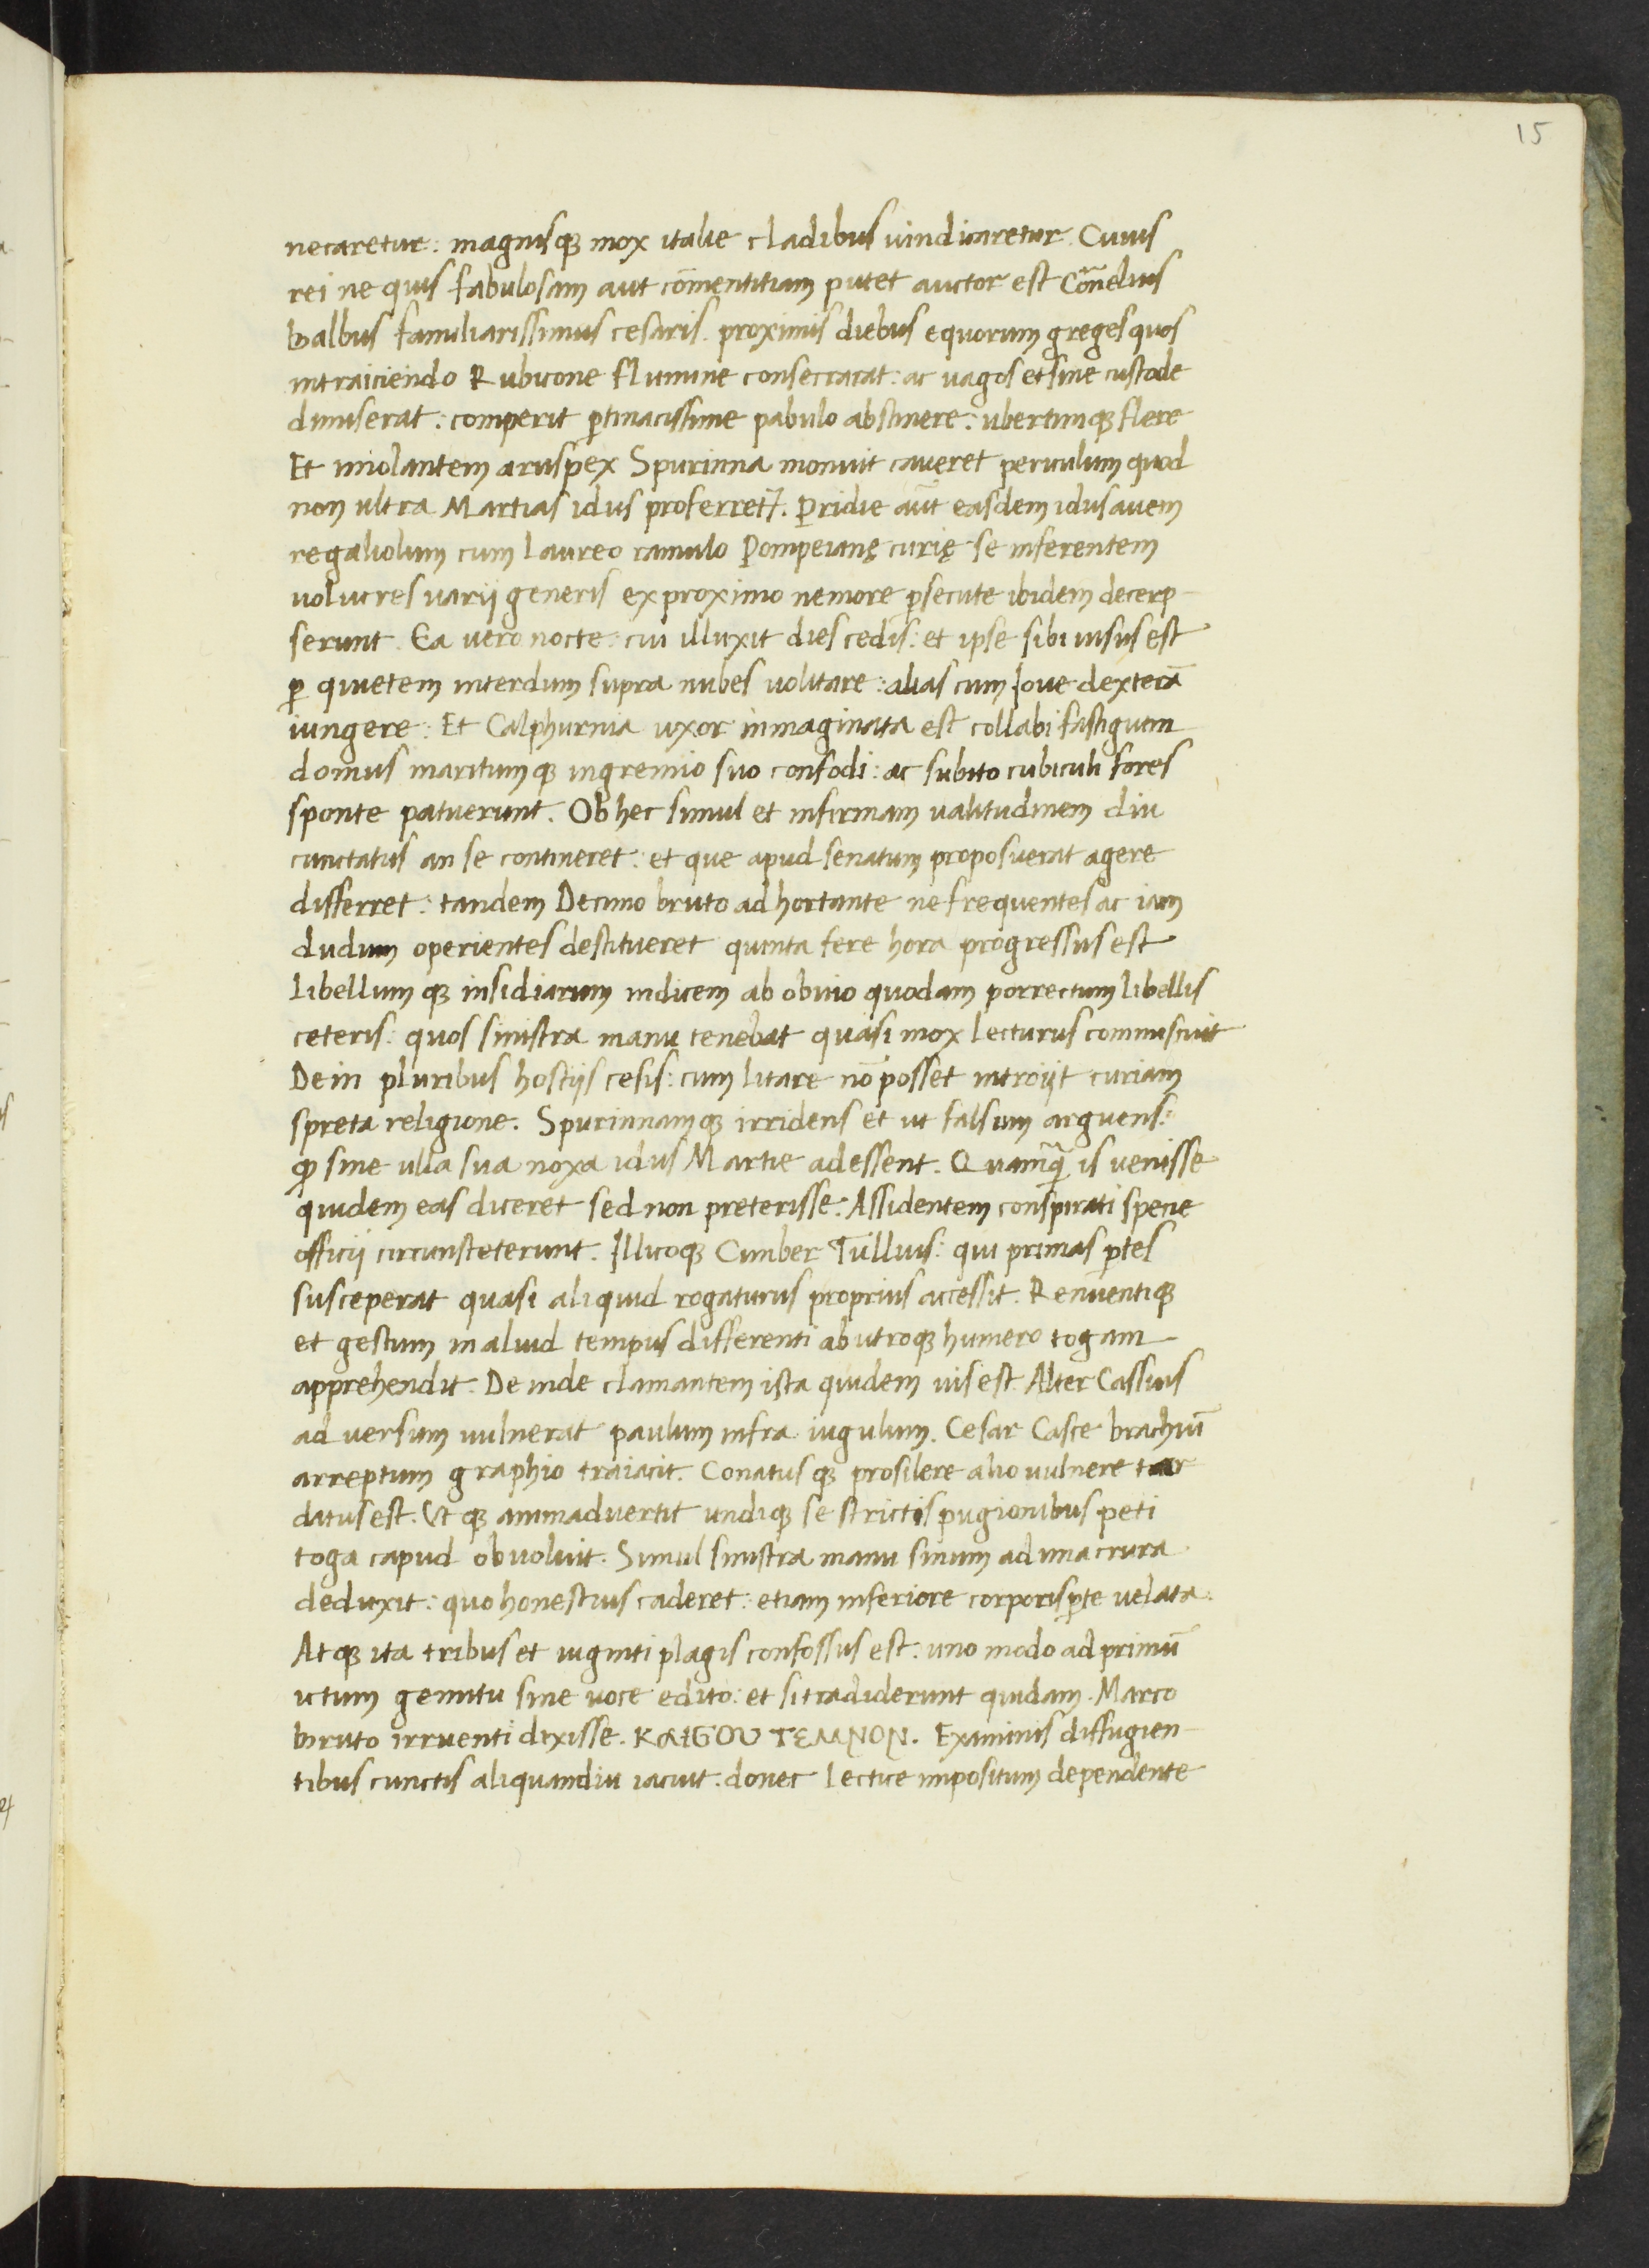 15
necaretur: magnisq; mox italie cladibus uindicaretur. Cuius
rei ne quis fabulosam aut cōmentitiam putet auctor est Corñelius
balbus familiarissimus cesaris. proximis diebus equorum greges quos
intraiciendo Rubicone flumine consecrarat: ac uagos et sine custode
dimiserat: comperit ꝑtinacissime pabulo abstinere: ubertimq; flere
Et imolantem aruspex Spurinna monuit caueret periculum quod
non ultra Martias idus proferretꝛ. Pridie aūt easdem idus auem
regaliolum cum laureo ramulo Pompeianę curię se inferentem
uolucres uarij generis ex proximo nemore ꝑsecute ibidem decerp-
serunt. Ea vero nocte: cui illuxit dies cedis: et ipse sibi uisus est
ꝑ quietem interdum supra nubes uolitare: alias cum Ioue dexterā
iungere: Et Calphurnia uxor inmaginata est collabi fastigium
domus maritumq; in gremio suo confodi: ac subito cubiculi fores
sponte patuerunt. Ob hec simul et infirmam ualitudinem diu
cunctatus an se contineret: et que apud senatum proposuerat agere
differret: tandem Decimo bruto adhortante ne frequentes ac iam
dudum operientes destitueret quinta fere hora progressus est
libellumq; insidiarum indicem ab obuio quodam porrectum libellis
ceteris: quos sinistra manu tenebat quasi mox lecturus commiscuit
Dein pluribus hostijs cesis: cum litare nō posset introijt curiam
spreta religione. Spurinnamq; irridens et ut falsum arguens:
ꝙ sine ulla sua noxa idus Martie adessent. Quamꝙ̄ is uenisse
quidem eas diceret sed non preterisse: Assidentem conspirati specie
officij circunsteterunt. Illicoq; Cimber Tullius: qui primas ꝑtes
susceperat quasi aliquid rogaturus proprius accessit. Renuentiq;
et gestum in aliud tempus differenti ab utroq; humero togam
apprehendit: Deinde clamantem ista quidem uis est. Alter Cassius
aduersum uulnerat paulum infra iugulum. Cesar Casce brachiū
arreptum graphio traiacit. Conatusq; prosilere alio uulnere tar
datus est. Vt q; animaduertit undiq; se strictis pugionibus peti
toga capud obuoluit. Simul sinistra manu sinum ad ima crura
deduxit: quo honestius caderet: etiam inferiore corporis ꝑte uelata.
Atq; ita tribus et uiginti plagis confossus est: uno modo ad primū
ictum gemitu sine uoce edito: et si tradiderunt quidam. Marco
bruto irruenti dixisse. ΚΑΙ ϹΟΥ ΤΕΜΝΟΝ. Exanimis diffugien-
tibus cunctis aliquandiu iacuit. donec lectice impositum dependente